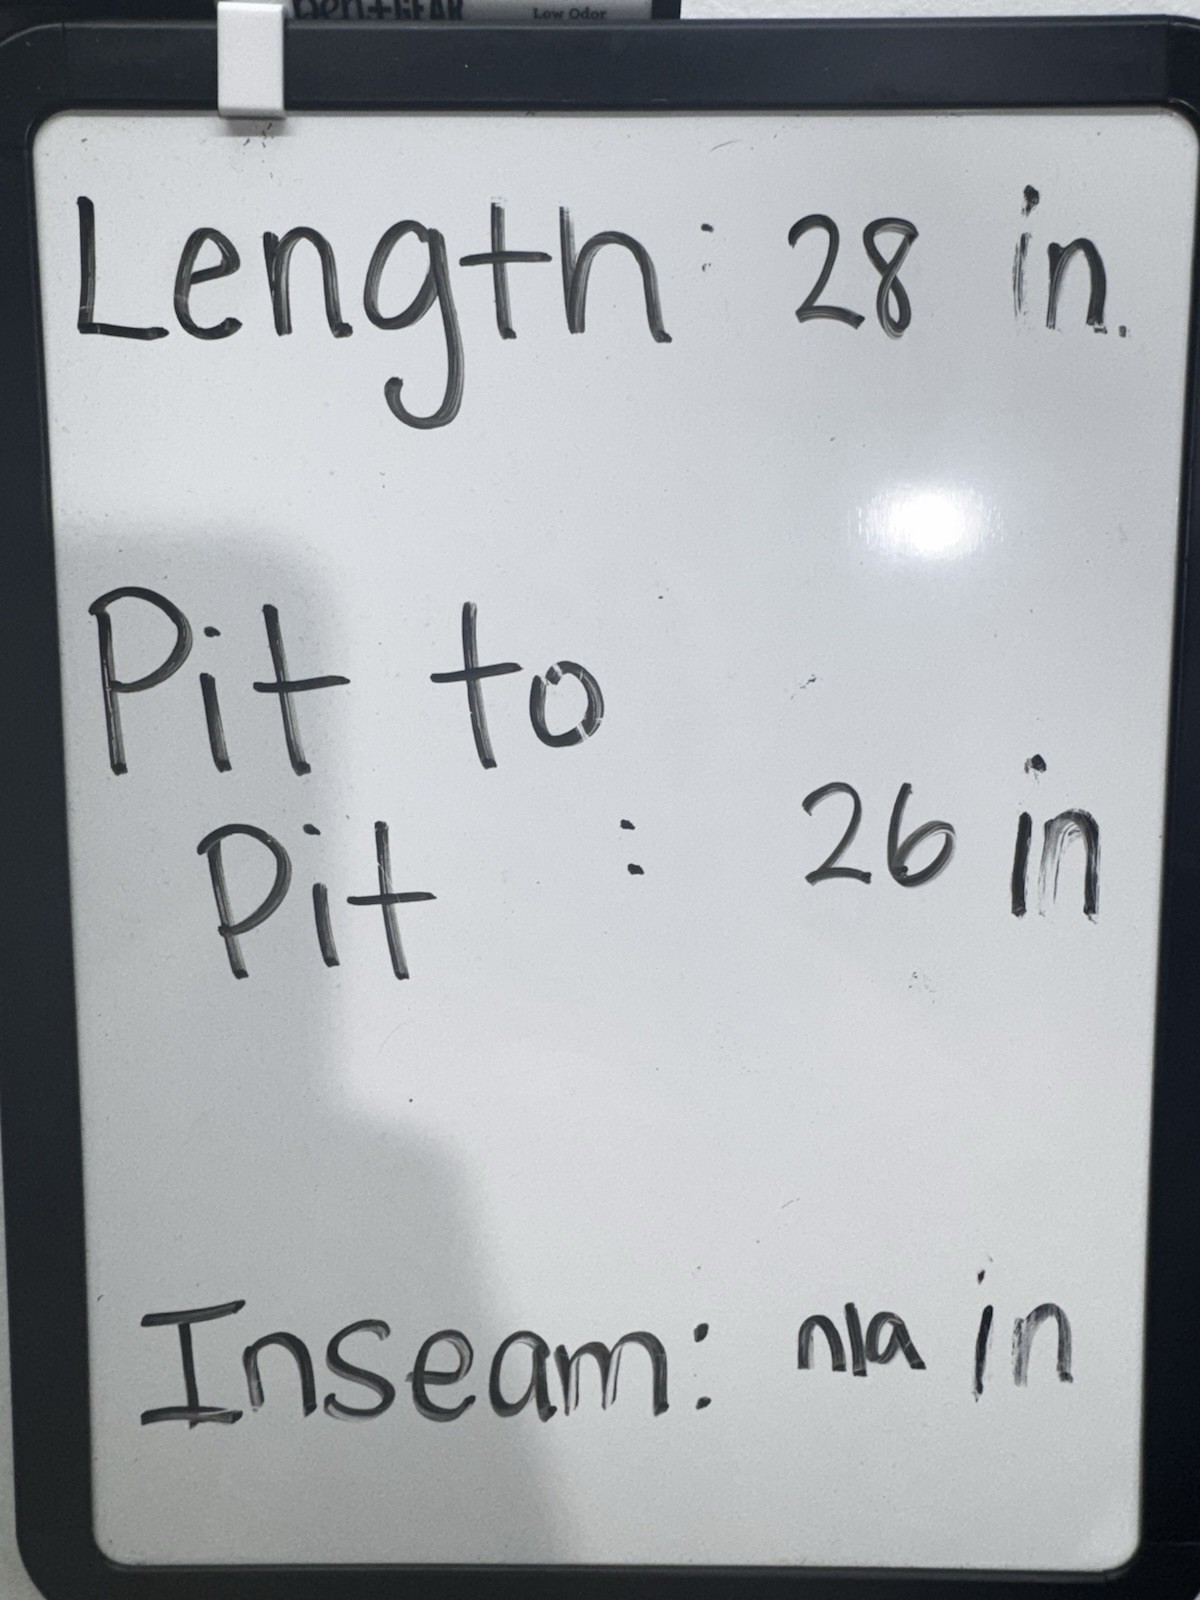 pen+GEAR Low Odor
Length: 28 in.
Pit to
Pit : 26 in
Inseam: n/a in